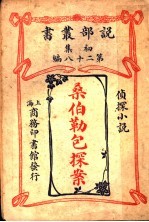 說部叢書
初集
第二十八編
偵探小說
桑伯勒包探案
上海
商務印書館發行